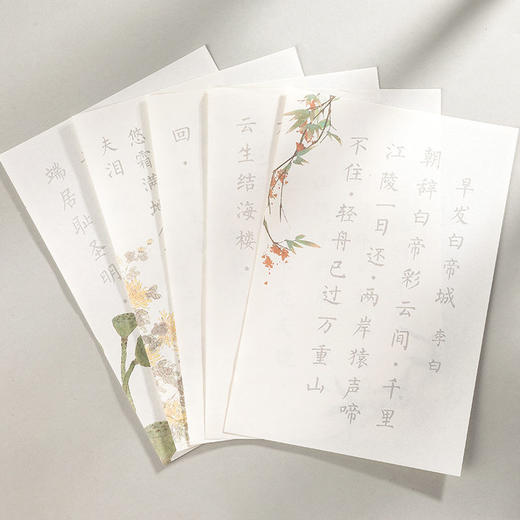 早发白帝城
李白
朝辞白帝彩云间。千里
江陵一日还。两岸猿声啼
不住。轻舟已过万重山
云生结海楼。
回。
悠霜满地
夫泪
端居耻圣明。